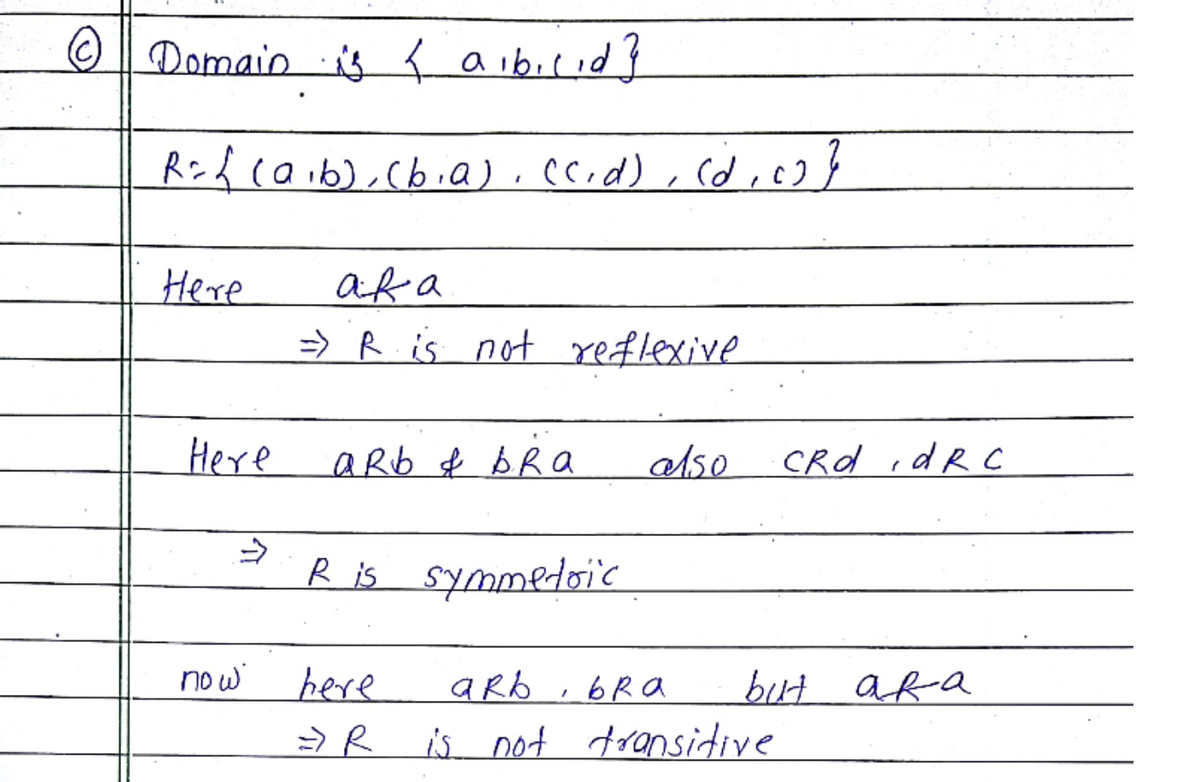 © Domain is { a,b,c,d }
R={ (a,b),(b,a), (c,d), (d,c) }
Here a R̸ a
⇒ R is not reflexive
Here aRb & bRa also cRd, dRc
⇒ R is symmetric
now here aRb, bRa but a R̸ a
⇒ R is not transitive